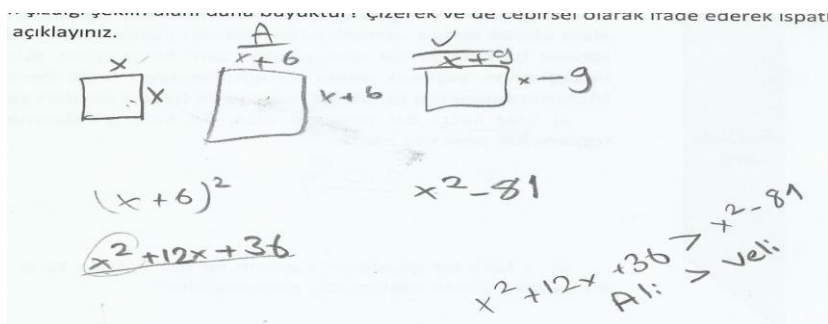 çizdiği şeklin alanı daha büyüktür? Çizerek ve de cebirsel olarak ifade ederek ispatl
açıklayınız.
A
V
x
x + 6
x + 9
x
x + 6
x - 9
(x + 6)²
x² - 81
x² + 12x + 36
x² + 12x + 36 > x² - 81
Ali > Veli